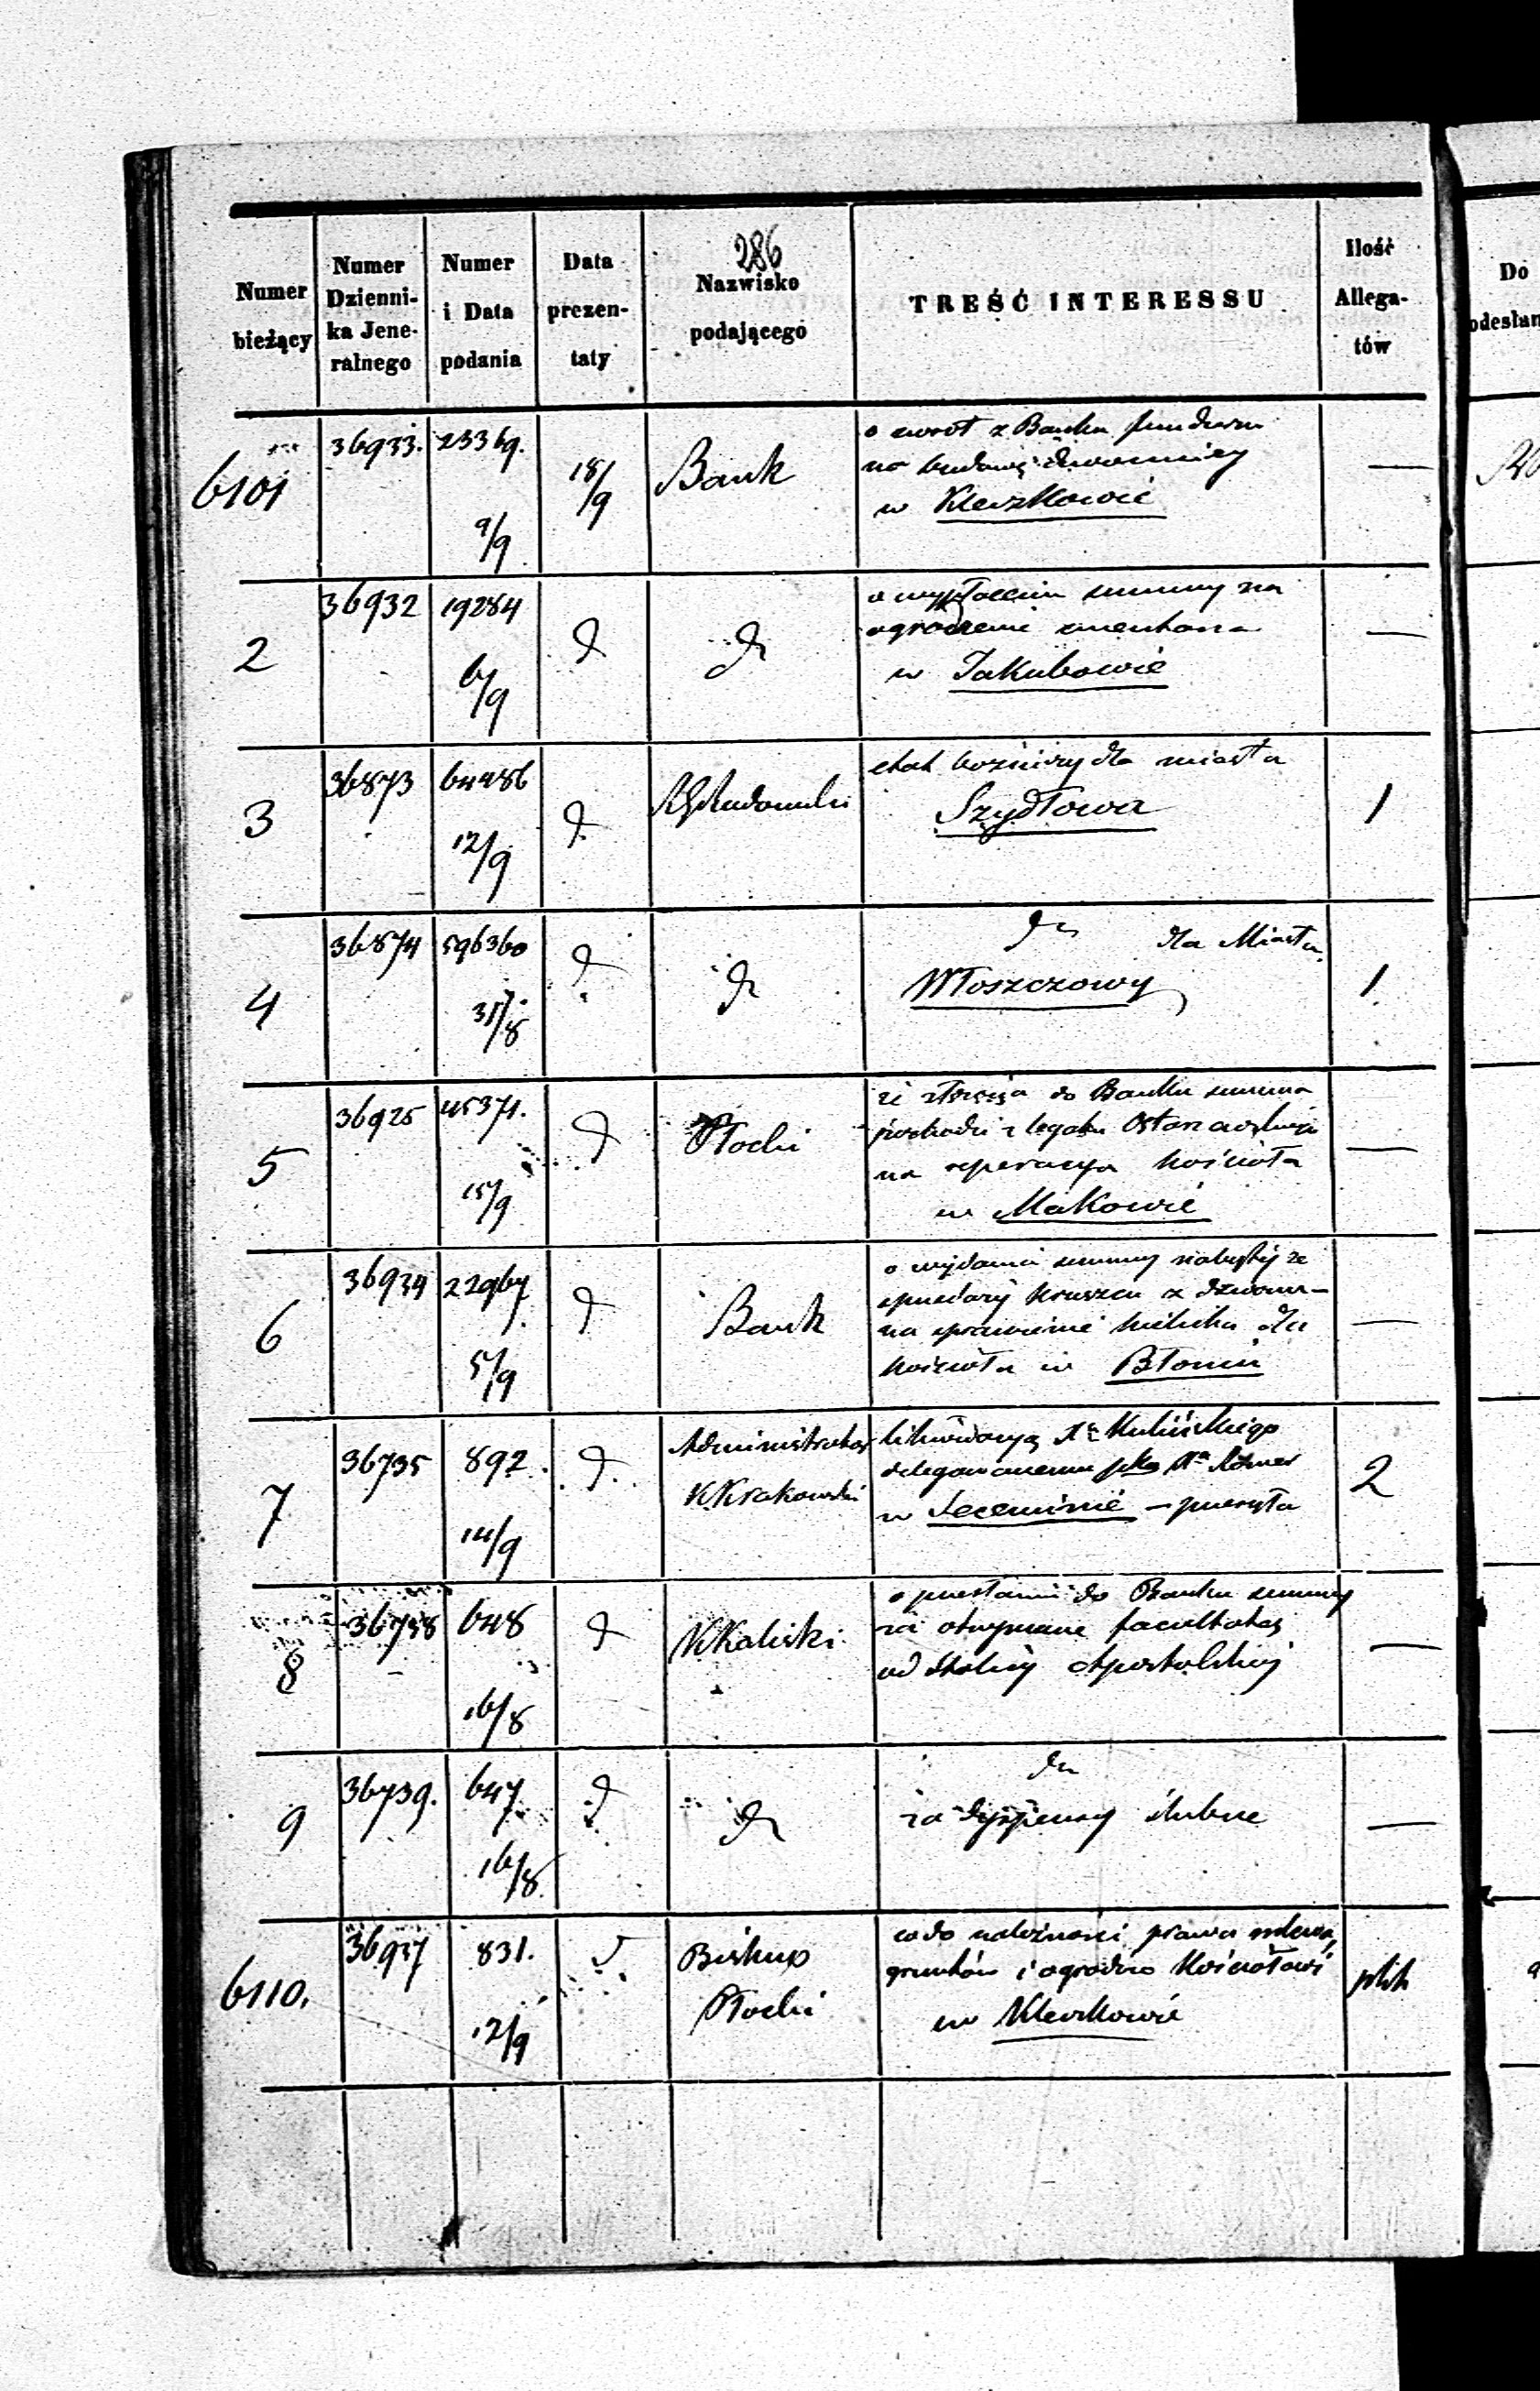 286
Numer bieżący | Numer Dzienni- ka Jene- ralnego | Numer i Data podania | Data prezen- taty | Nazwisko podającego | TREŚĆ INTERESSU | Ilość Allega- tów | Do odesłan
6101 | 36933. | 23369. 9/9 | 18/9 | Bank | o zwrot z Banku funduszu
na budowę dzwonnicy
w Kleszkowie | —
2 | 36932 | 19284 6/9 | d | dn | o wypłacenie summy na
ogrodzenie cmentarza
w Jakubowie | —
3 | 36873 | 64486 12/9 | d | RG Radomski | etat bożniczy dla miasta
Szydłowa | 1
4 | 36874 | 596360 31/8 | d | dn | dn dla Miasta
Włoszczowy | 1
5 | 36925 | 45371. 15/9 | d | Płocki | że do Banku summa
pochodzi z legatu
na reperacyą kościoła
w Makowie | —
6 | 36934 | 22967 5/9 | d | Bank | o wydanie summy nabytéj ze
sprzedaży kruszcu z dzwonu
na sprawienie kielicha dla
kościoła w Błoniu | —
7 | 36735 | 892. 14/9 | d. | Administrator
K Krakowski | likwidacyą Xa Kulińskiego
delegowanemu
w Seceminie — przesyła | 2
8 | 36738 | 648 16/8 | d | K Kaliski | o przesłanie do Banku summy
za otrzymane facultates
od Stolicy Apostolskiéj | —
9 | 36739. | 647 16/8 | d | dn | dn
za dyspensy ślubne | —
6110. | 36937 | 831. 12/9 | d | Biskup
Płocki | co do należności prawa
gruntów i ogrodu Kościołowi
w Kleszkowie | plik